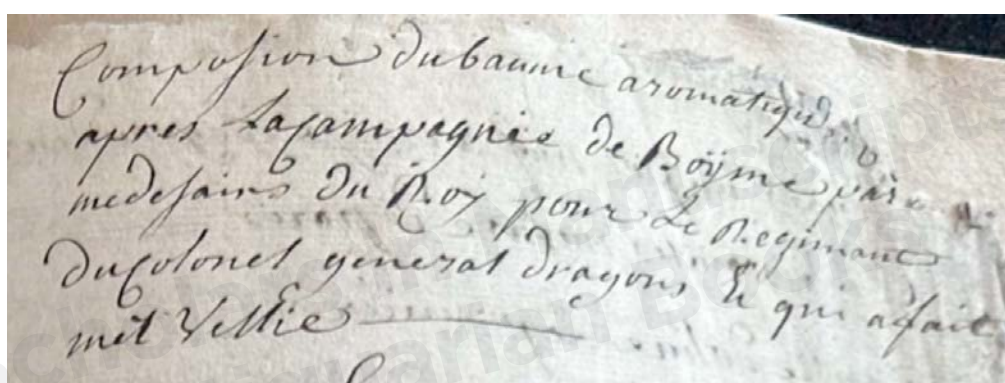 Composion du baume aromatique
apres La Campagnie de Boÿme par
medesains du Roy pour Le Regimant
du Colonel general dragons Et qui a fait